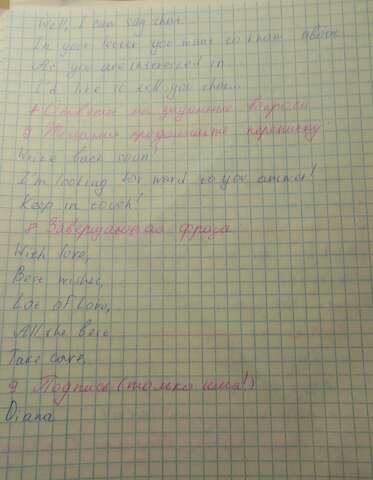 Well, I can say that
In your letter you want to know about
As you are interested in...
I'd like to tell you that...
+ Ответы на заданные вопросы
Желание продолжить переписку:
Write back soon!
I'm looking forward to you answer!
Keep in touch!
8 Завершающая фраза:
With love,
Best wishes,
Lot of love,
All the best
Take care,
9 Подпись (только имя!)
Diana